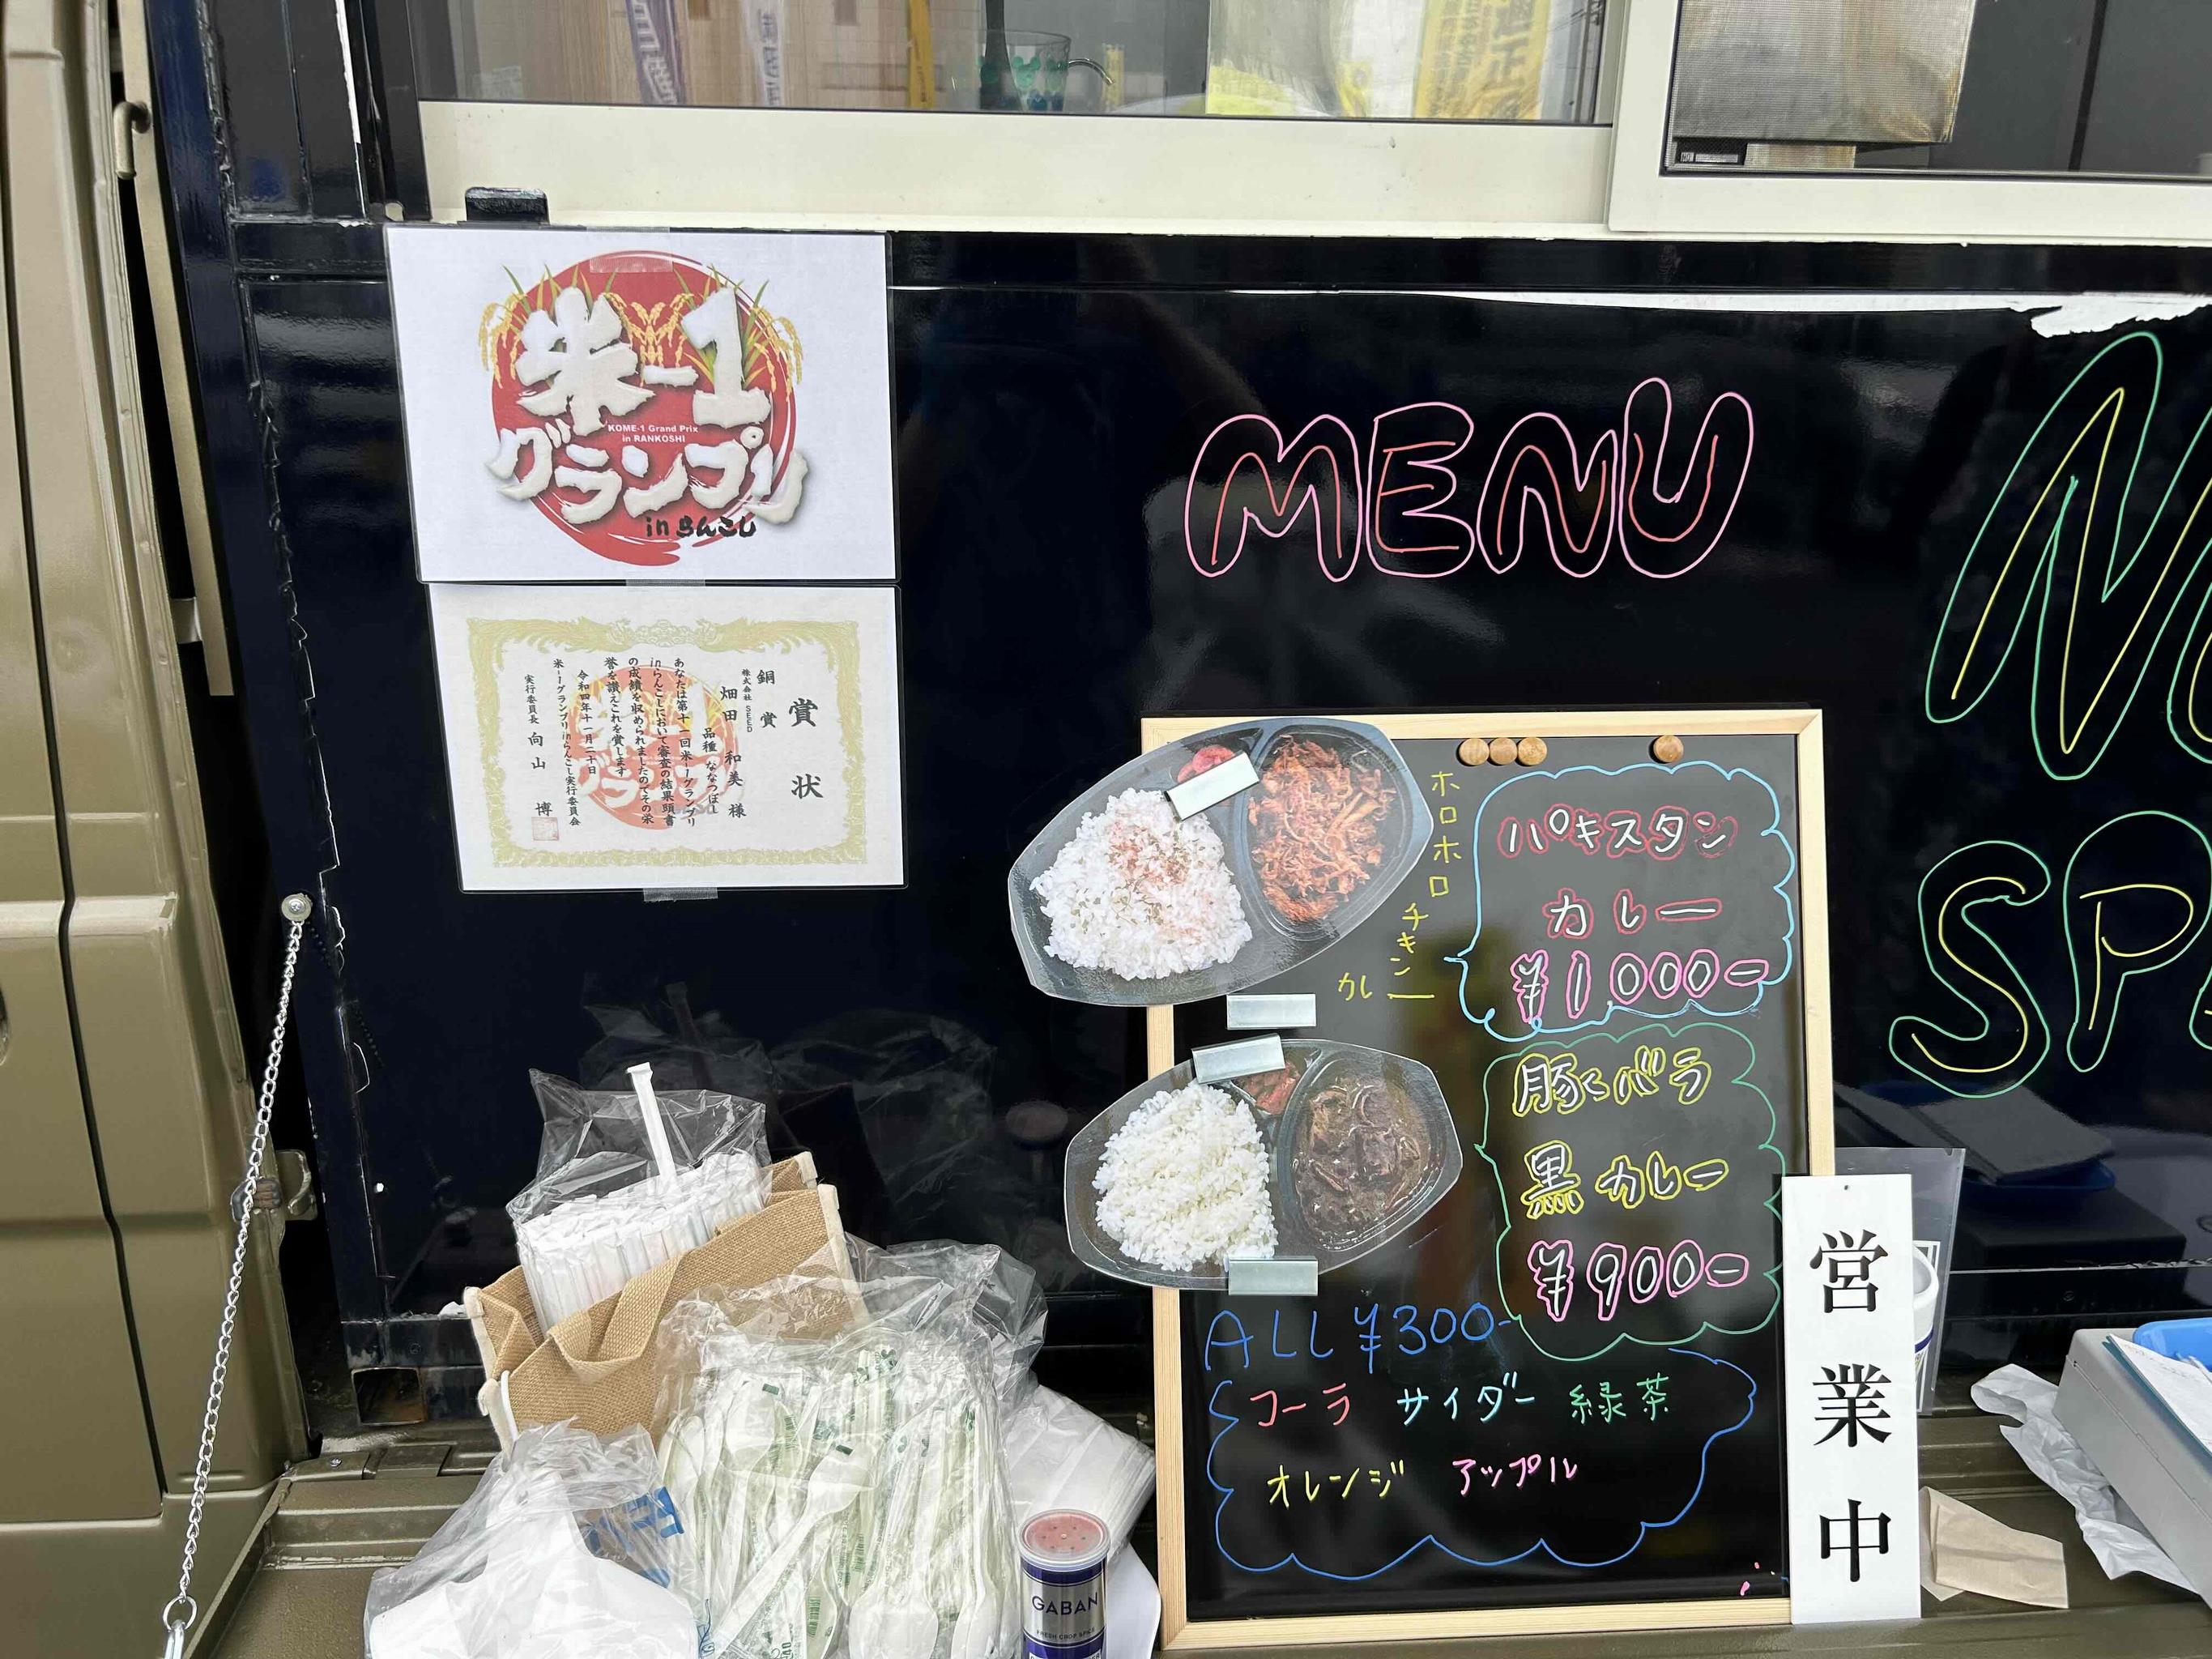 米-1
KOME-1 Grand Prix
in RANKOSHI
グランプリ
in らんこし
賞状
銅賞
株式会社 SEED
畑田 和美 様
品種 ななつぼし
あなたは第十一回米-1グランプリ
inらんこしにおいて審査の結果頭書
の成績を収められましたのでその栄
誉を讃えこれを賞します
令和四年十一月二十日
米-1グランプリinらんこし実行委員会
実行委員長 向山 博
MENU
SP
ホロホロ
チキン
カレー
パキスタン
カレー
¥1000-
豚バラ
黒カレー
¥900-
ALL ¥300-
コーラ サイダー 緑茶
オレンジ アップル
営業中
GABAN
FRESH-CROP SPICE